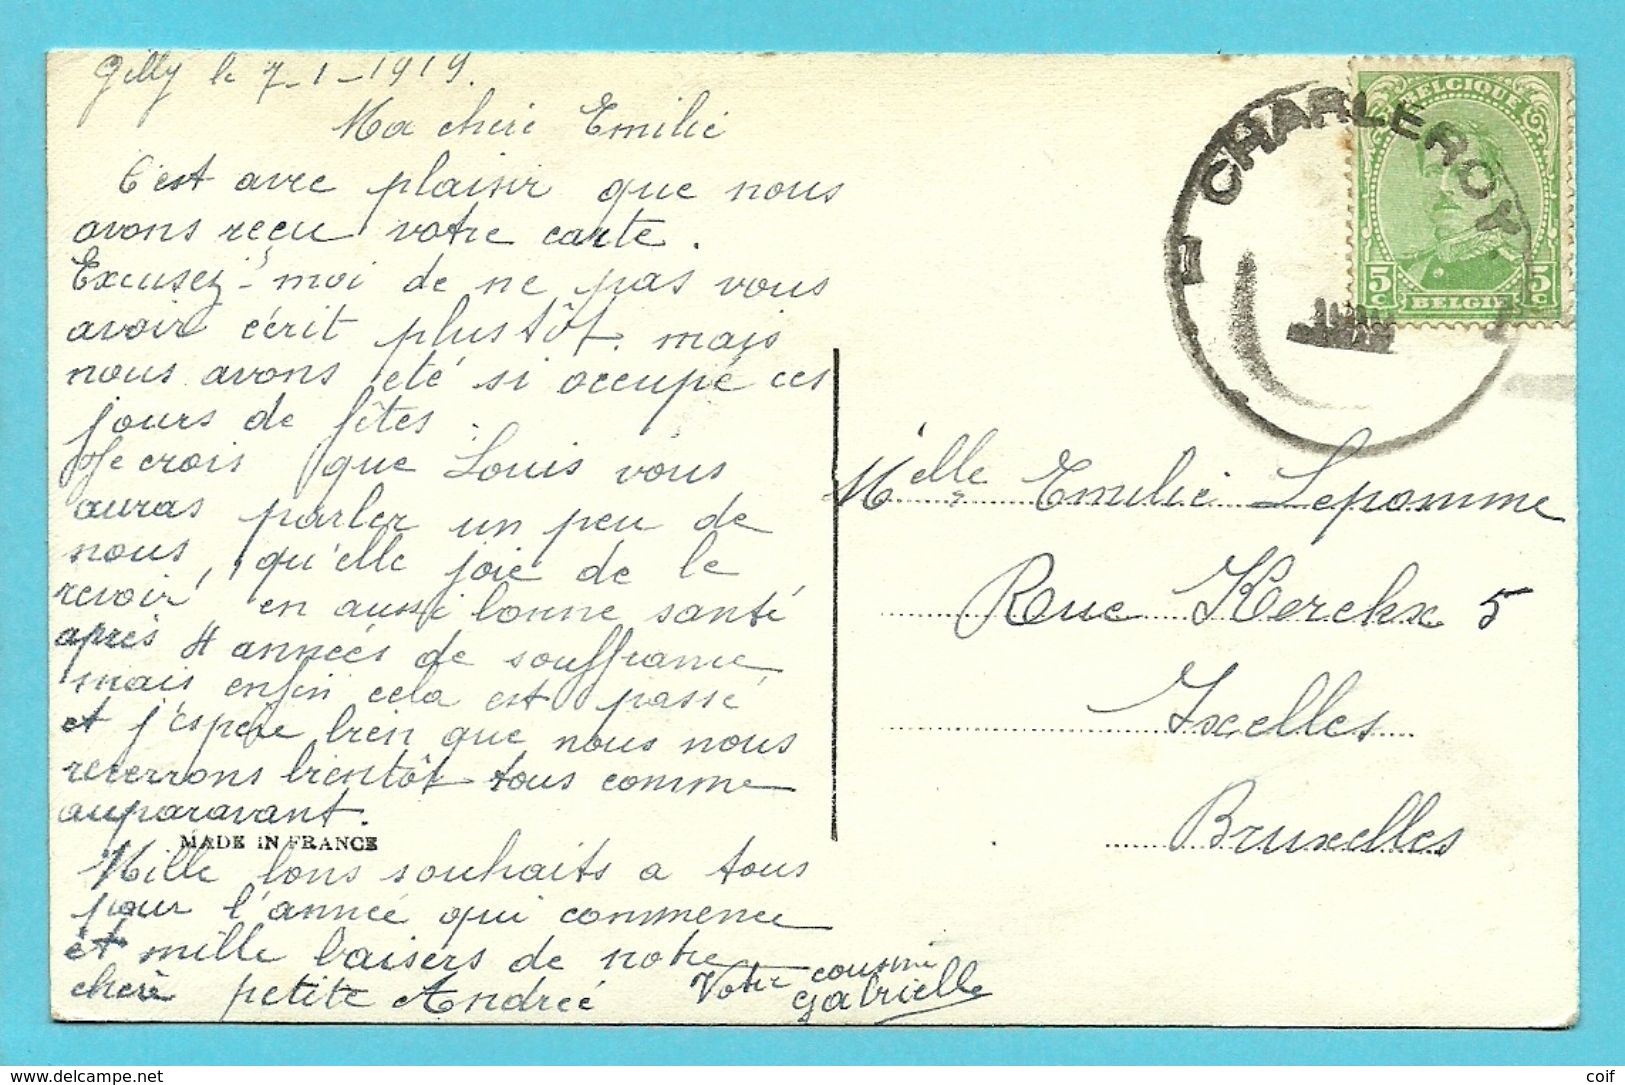 Gilly le 7-1-1919.
Ma chere Emilie
C'est avec plaisir que nous
avons reçu votre carte.
Excusez-moi de ne pas vous
avoir écrit plus tôt. mais
nous avons été si occupé ces
jours de fêtes.
Je crois que Louis vous
auras parler un peu de
nous, qu'elle joie de le
revoir, en aussi bonne santé
après 4 années de souffrance
mais enfin cela est passé
et j'espère bien que nous nous
reverrons bientôt tous comme
auparavant.
MADE IN FRANCE
Mille bons souhaits a tous
pour l'année qui commence
et mille baisers de notre
chère petite Andrée
Votre cousine
Gabrielle
CHARLEROY
1
BELGIQUE
5c 5c
BELGIE
Melle Emilie Lepomme
Rue Kerckx 5
Ixelles
Bruxelles
delcampe.net
coif